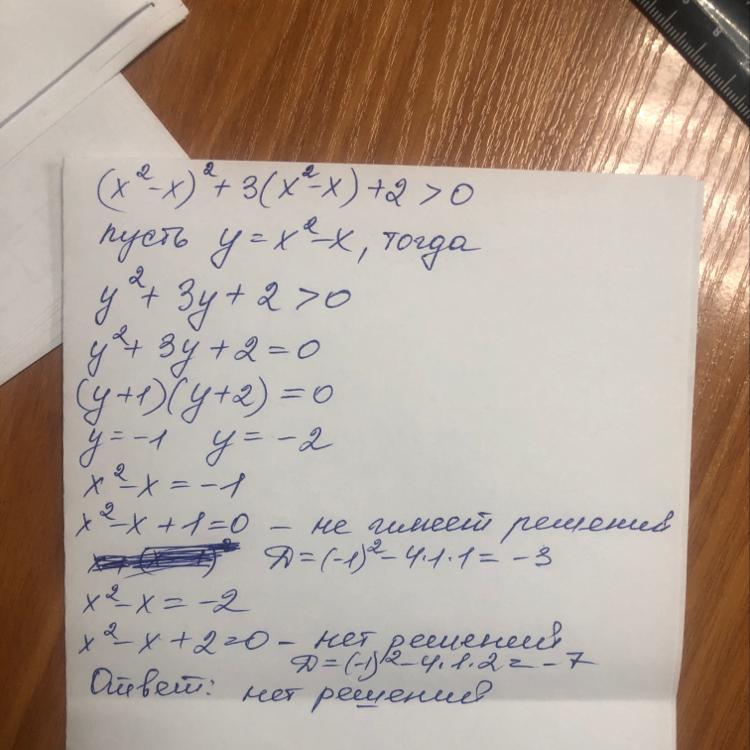 (x²-x)²+3(x²-x)+2>0
пусть y=x²-x, тогда
y²+3y+2>0
y²+3y+2=0
(y+1)(y+2)=0
y=-1 y=-2
x²-x=-1
x²-x+1=0 - не имеет решений
Д=(-1)²-4·1·1=-3
x²-x=-2
x²-x+2=0 - нет решений
Д=(-1)²-4·1·2=-7
Ответ: нет решений